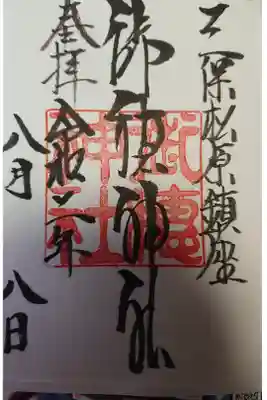 三保松原鎮座
御穂神社
奉拝
令和二年
八月八日
御穂神社